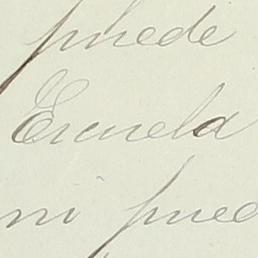 puede
Escuela
ni pued